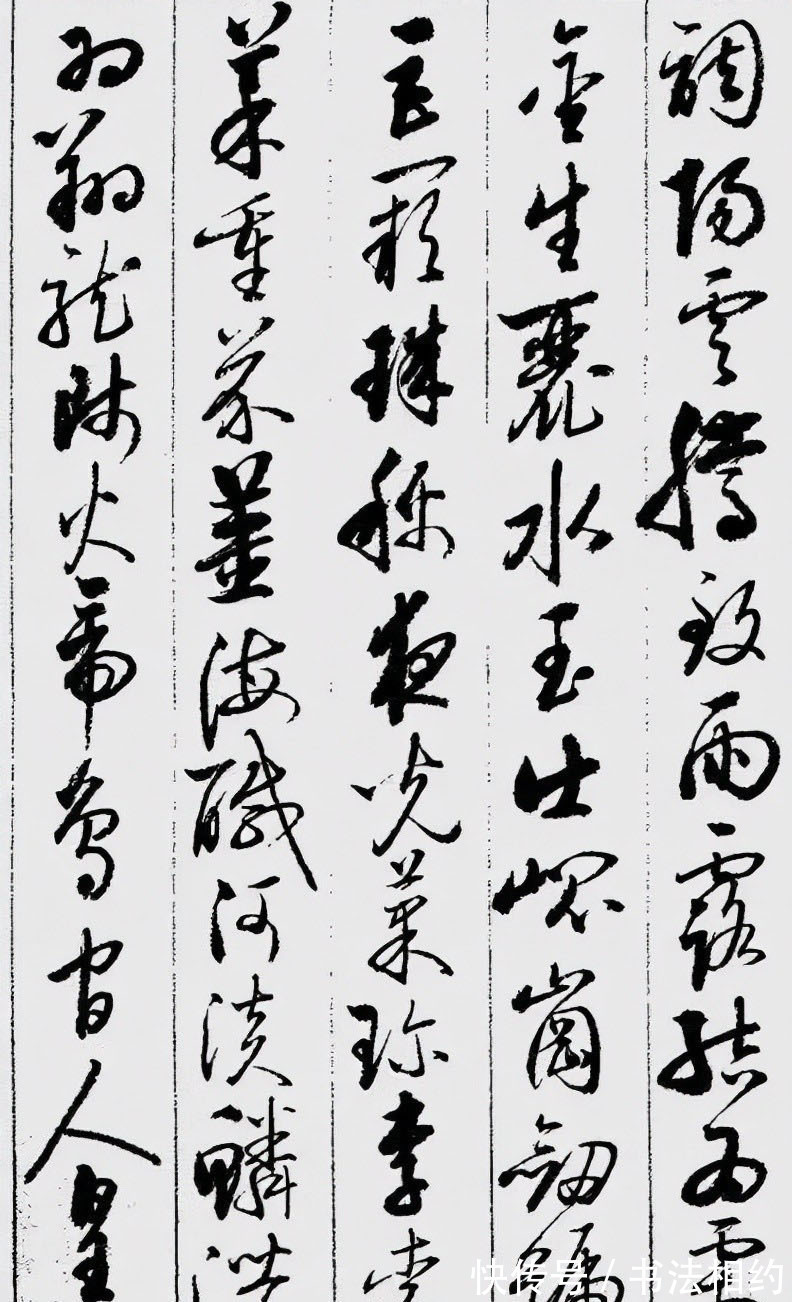 調陽雲騰致雨露結為霜
金生麗水玉出崐崗劒號
巨闕珠稱夜光菓珍李柰
菜重芥薑海醎河淡鱗潛
羽翔龍師火帝鳥官人皇
快传号/书法相约